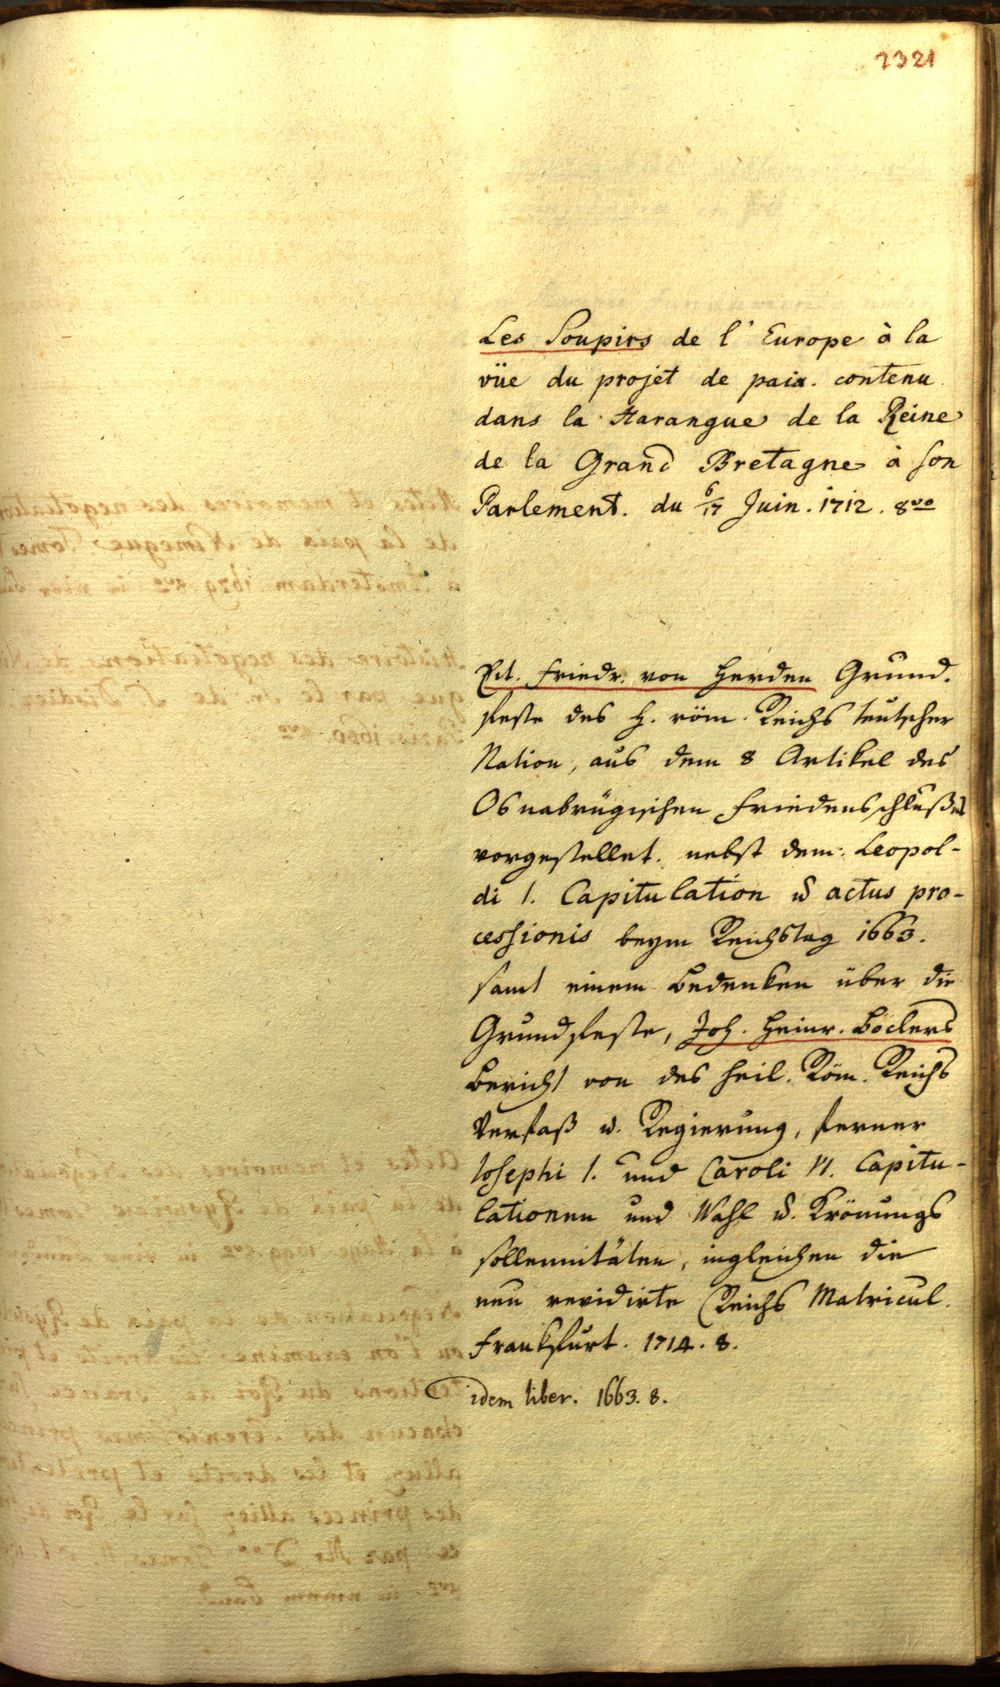 2321
Les Soupirs de l'Europe à la
vüe du projet de paix. contenu
dans la Harangue de la Reine
de la Grand Bretagne à son
Parlement. du 6/17 Juin. 1712. 8vo
Eit. Friedr. von Herden Grund.
feste des H. röm. Reichs teutscher
Nation, aus dem 8 Artikel des
Osnabrügischen Friedensschlußes
vorgestellet. nebst dem: Leopol-
di 1. Capitulation u actus pro-
cessionis beym Reichstag 1663.
samt einem Bedenken über die
Grundfeste, Joh. Heinr. Böclers
Bericht von des heil. Röm. Reichs
Verfaß u. Regierung, ferner
Josephi 1. und Caroli VI. Capitu-
lationen und Wahl u. Krönungs
sollennitäten, ingleichen die
neu revidirte Reichs Matricul.
Frankfurt. 1714. 8.
idem liber. 1663. 8.